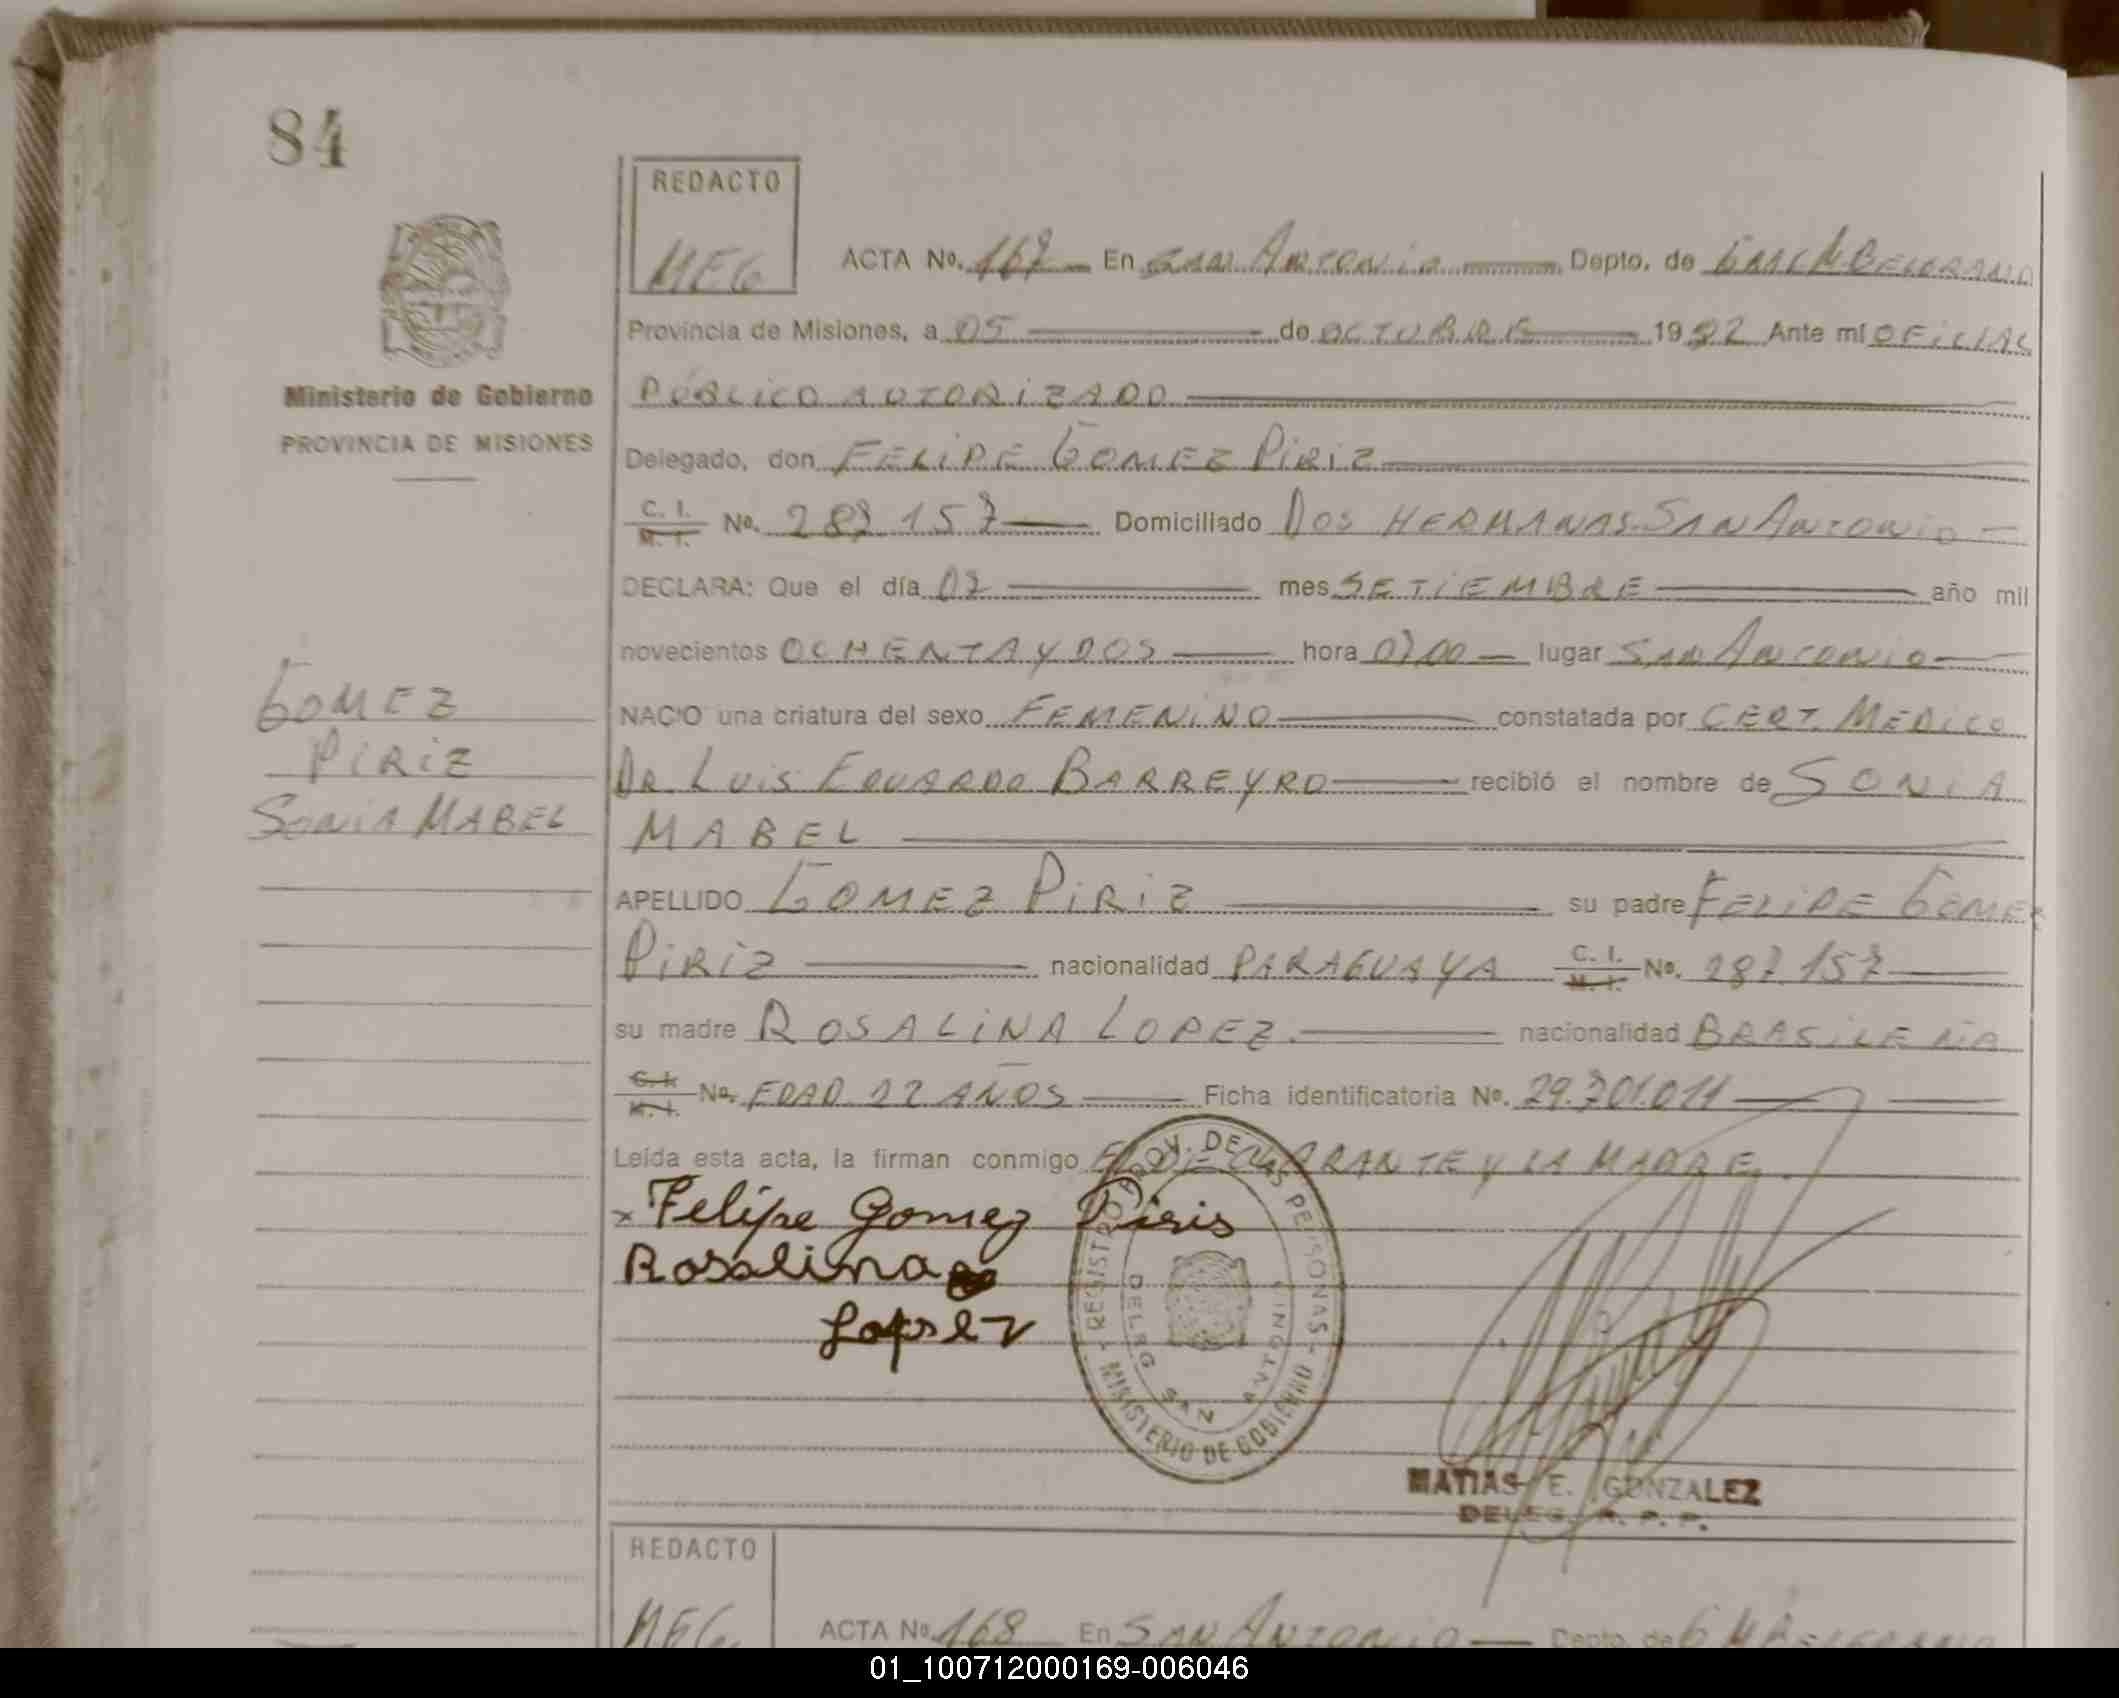 84
REDACTO
MEG
ACTA No. 167 En SAN ANTONIO Depto. de GRAL M BELGRANO
Provincia de Misiones, a 05 de OCTUBRE 1982 Ante mí OFICIAL
PÚBLICO AUTORIZADO
Ministerio de Gobierno
PROVINCIA DE MISIONES
Delegado, don FELIPE GOMEZ PIRIZ
C. I.
M. I. No. 287.157 Domiciliado DOS HERMANAS-SAN ANTONIO
DECLARA: Que el día 07 mes SETIEMBRE año mil
novecientos OCHENTA Y DOS hora 07,00 lugar SAN ANTONIO
NACIO una criatura del sexo FEMENINO constatada por CERT. MEDICO
DR. LUIS EDUARDO BARREYRO recibió el nombre de SONIA
MABEL
GOMEZ
PIRIZ
SONIA MABEL
APELLIDO GOMEZ PIRIZ su padre FELIPE GOMEZ
PIRIZ nacionalidad PARAGUAYA C. I.
M. I. No. 287.157
su madre ROSALINA LOPEZ. nacionalidad BRASILEÑA
C. I.
M. I. No. EDAD 22 AÑOS Ficha identificatoria No. 29.701.011
Leída esta acta, la firman conmigo EL DECLARANTE Y LA MADRE.
x Felipe Gomez Piris
Rosalina
Lopez
REGISTRO PROV. DE LAS PERSONAS - MINISTERIO DE GOBIERNO -
DELEG SAN ANTONIO
MATIAS E. GONZALEZ
DELEG. R. P. P.
REDACTO
MEG
ACTA No. 168 En SAN ANTONIO Depto. de G M BELGRANO
01_100712000169-006046